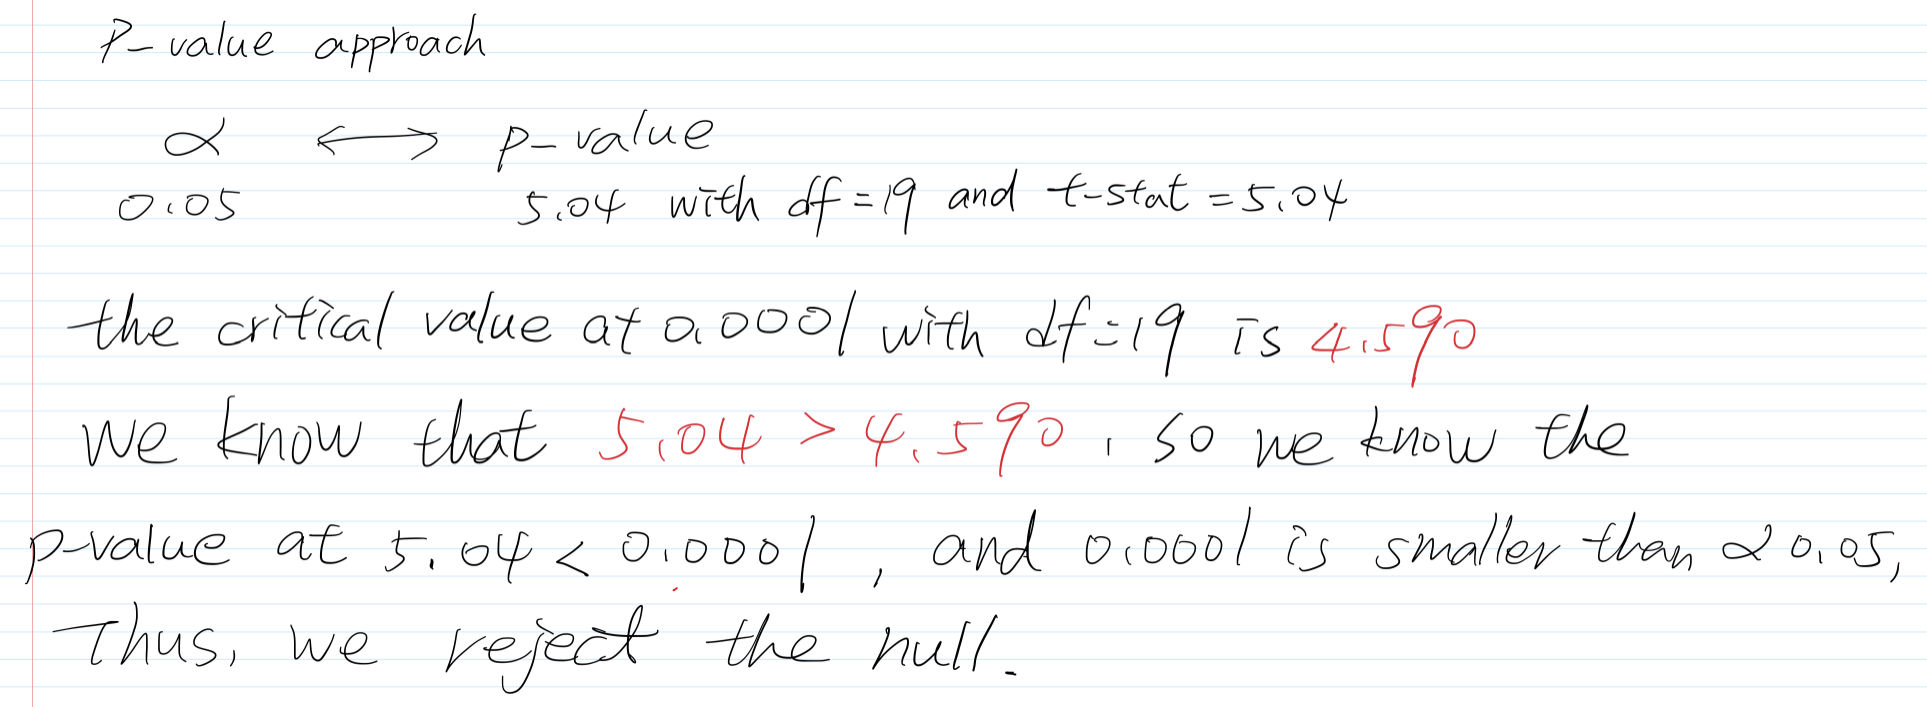 P-value approach
α ⟷ p-value
0.05 5.04 with df=19 and t-stat=5.04
the critical value at 0.0001 with df=19 is 4.590
we know that 5.04 > 4.590, so we know the
p-value at 5.04 < 0.0001, and 0.0001 is smaller than α 0.05,
Thus, we reject the null.